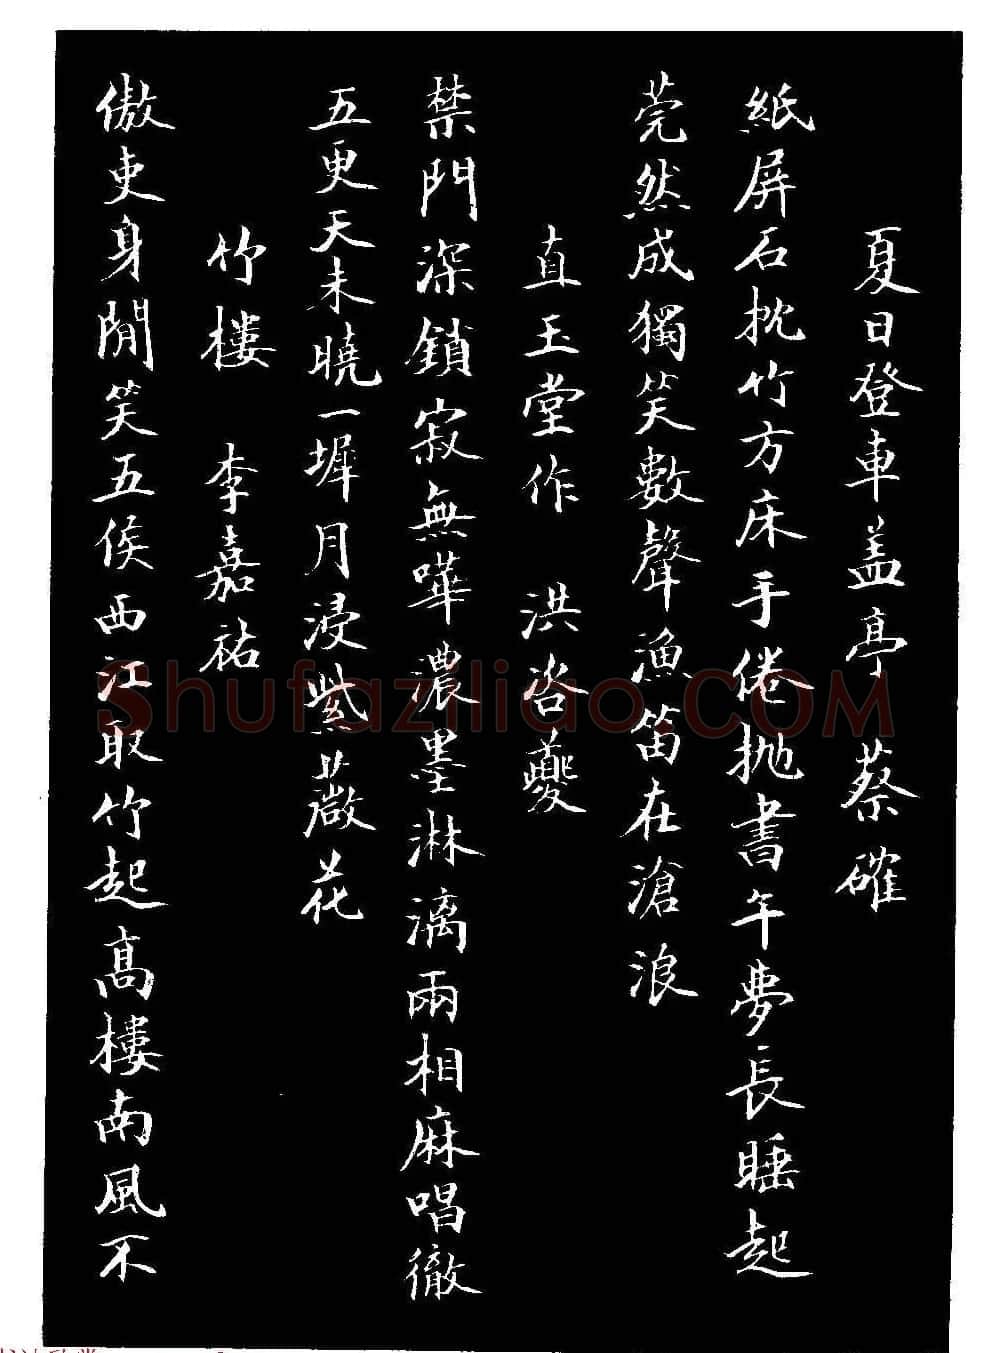 夏日登車盖亭 蔡確
紙屏石枕竹方床手倦抛書午夢長睡起
莞然成獨笑數聲漁笛在滄浪
直玉堂作 洪咨夔
禁門深鎖寂無嘩濃墨淋漓兩相麻唱徹
五更天未曉一墀月浸紫薇花
竹樓 李嘉祐
傲吏身閒笑五侯西江取竹起高樓南風不
Shufaziliao.COM